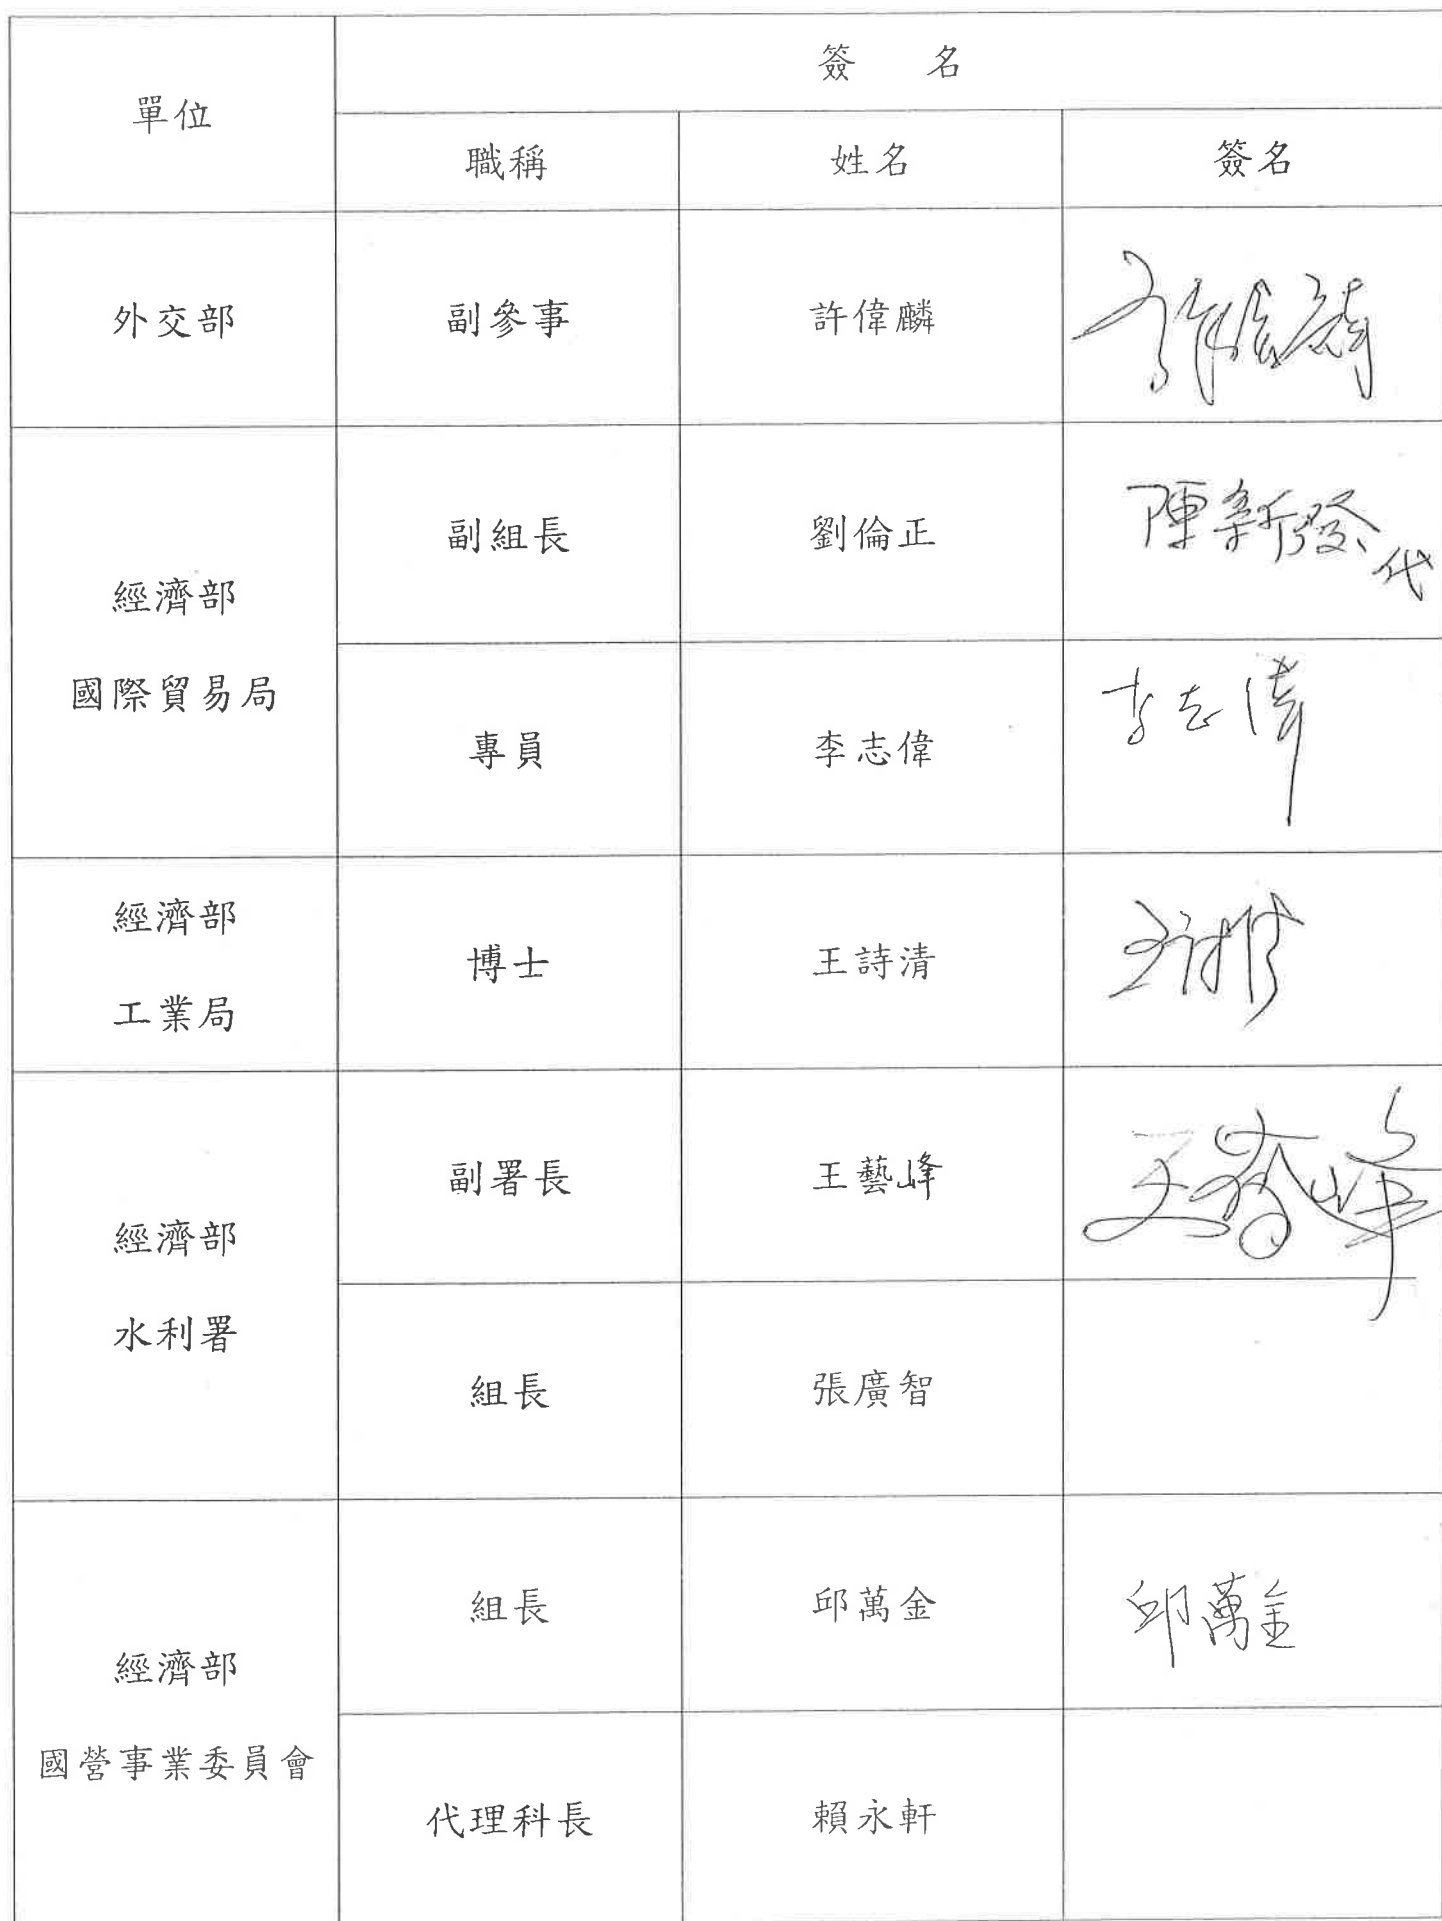 簽 名
單位
職稱 姓名 簽名
外交部 副參事 許偉麟
經濟部
國際貿易局
副組長 劉倫正 陳新發代
專員 李志偉 李志偉
經濟部
工業局
博士 王詩清
經濟部
水利署
副署長 王藝峰
組長 張廣智
經濟部
國營事業委員會
組長 邱萬金 邱萬金
代理科長 賴永軒